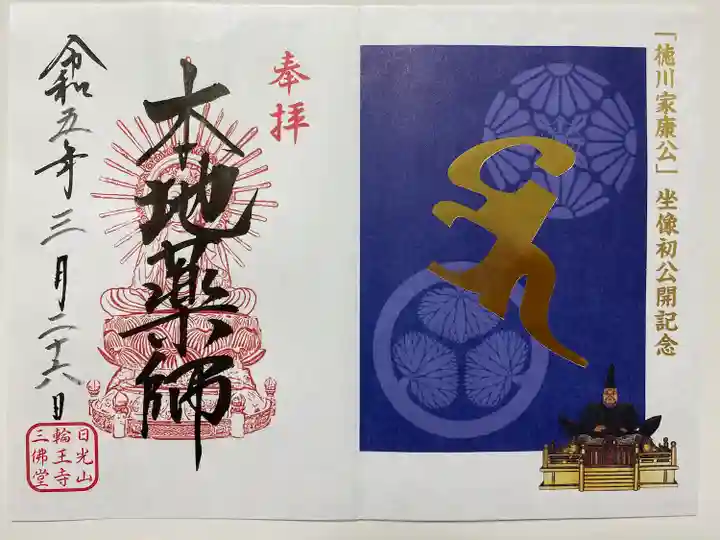 「徳川家康公」坐像初公開記念
奉拝
本地薬師
令和五年三月二十六日
日光山
輪王寺
三佛堂